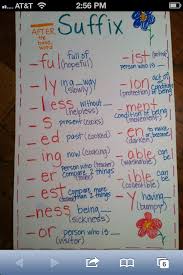 AT&T 2:56 PM
Suffix
AFTER
the base
word
-ful full of
(hopeful)
-ly in a way
(slowly)
-less without
(helpless)
-s present (cooks)
-ed past (cooked)
-ing now (cooking)
-er person who (teacher)
compare 2 things
-est compare more
than 2 things
-ness being
(sickness)
-or person who is
(visitor)
-ist
person who is
-ion act of
condition of
-ment
condition of being
-en to make
-able can be
-ible can be
-y having
(bumpy)